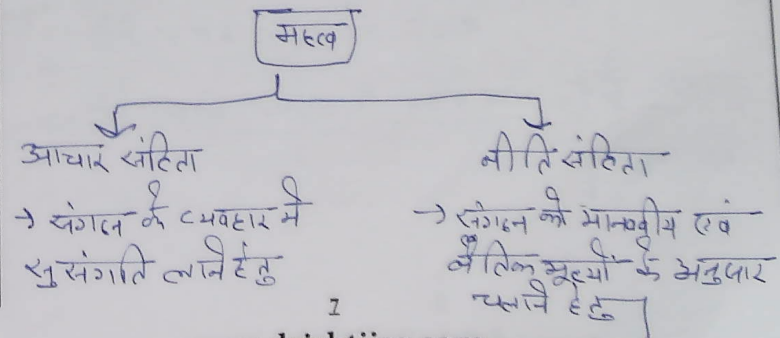 महत्व
आचार संहिता
नीति संहिता
→ संगठन के व्यवहार में
सुसंगति लाने हेतु
→ संगठन को मानवीय एवं
नैतिक मूल्यों के अनुसार
चलाने हेतु